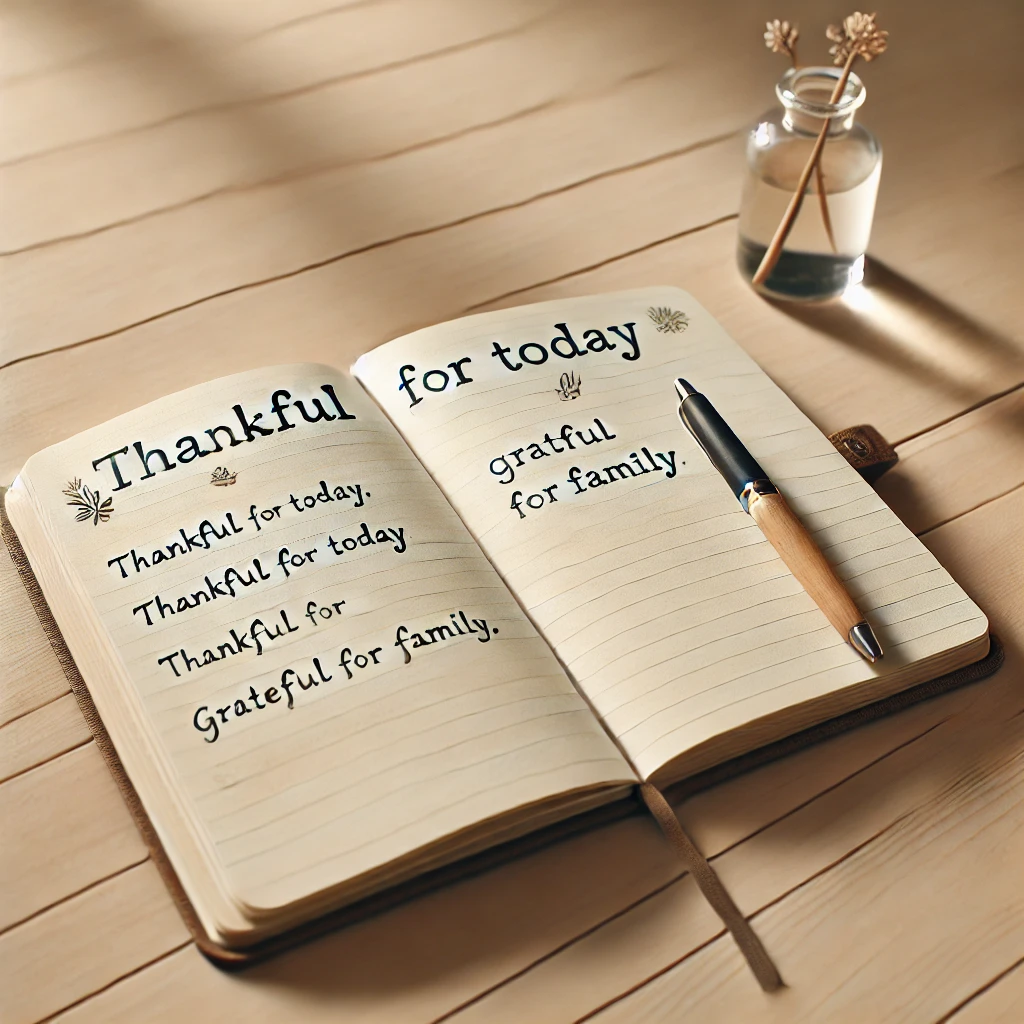 Thankful
Thankful for today.
Thankful for today
Thankful for
Grateful for family.
for today
gratful
for family.